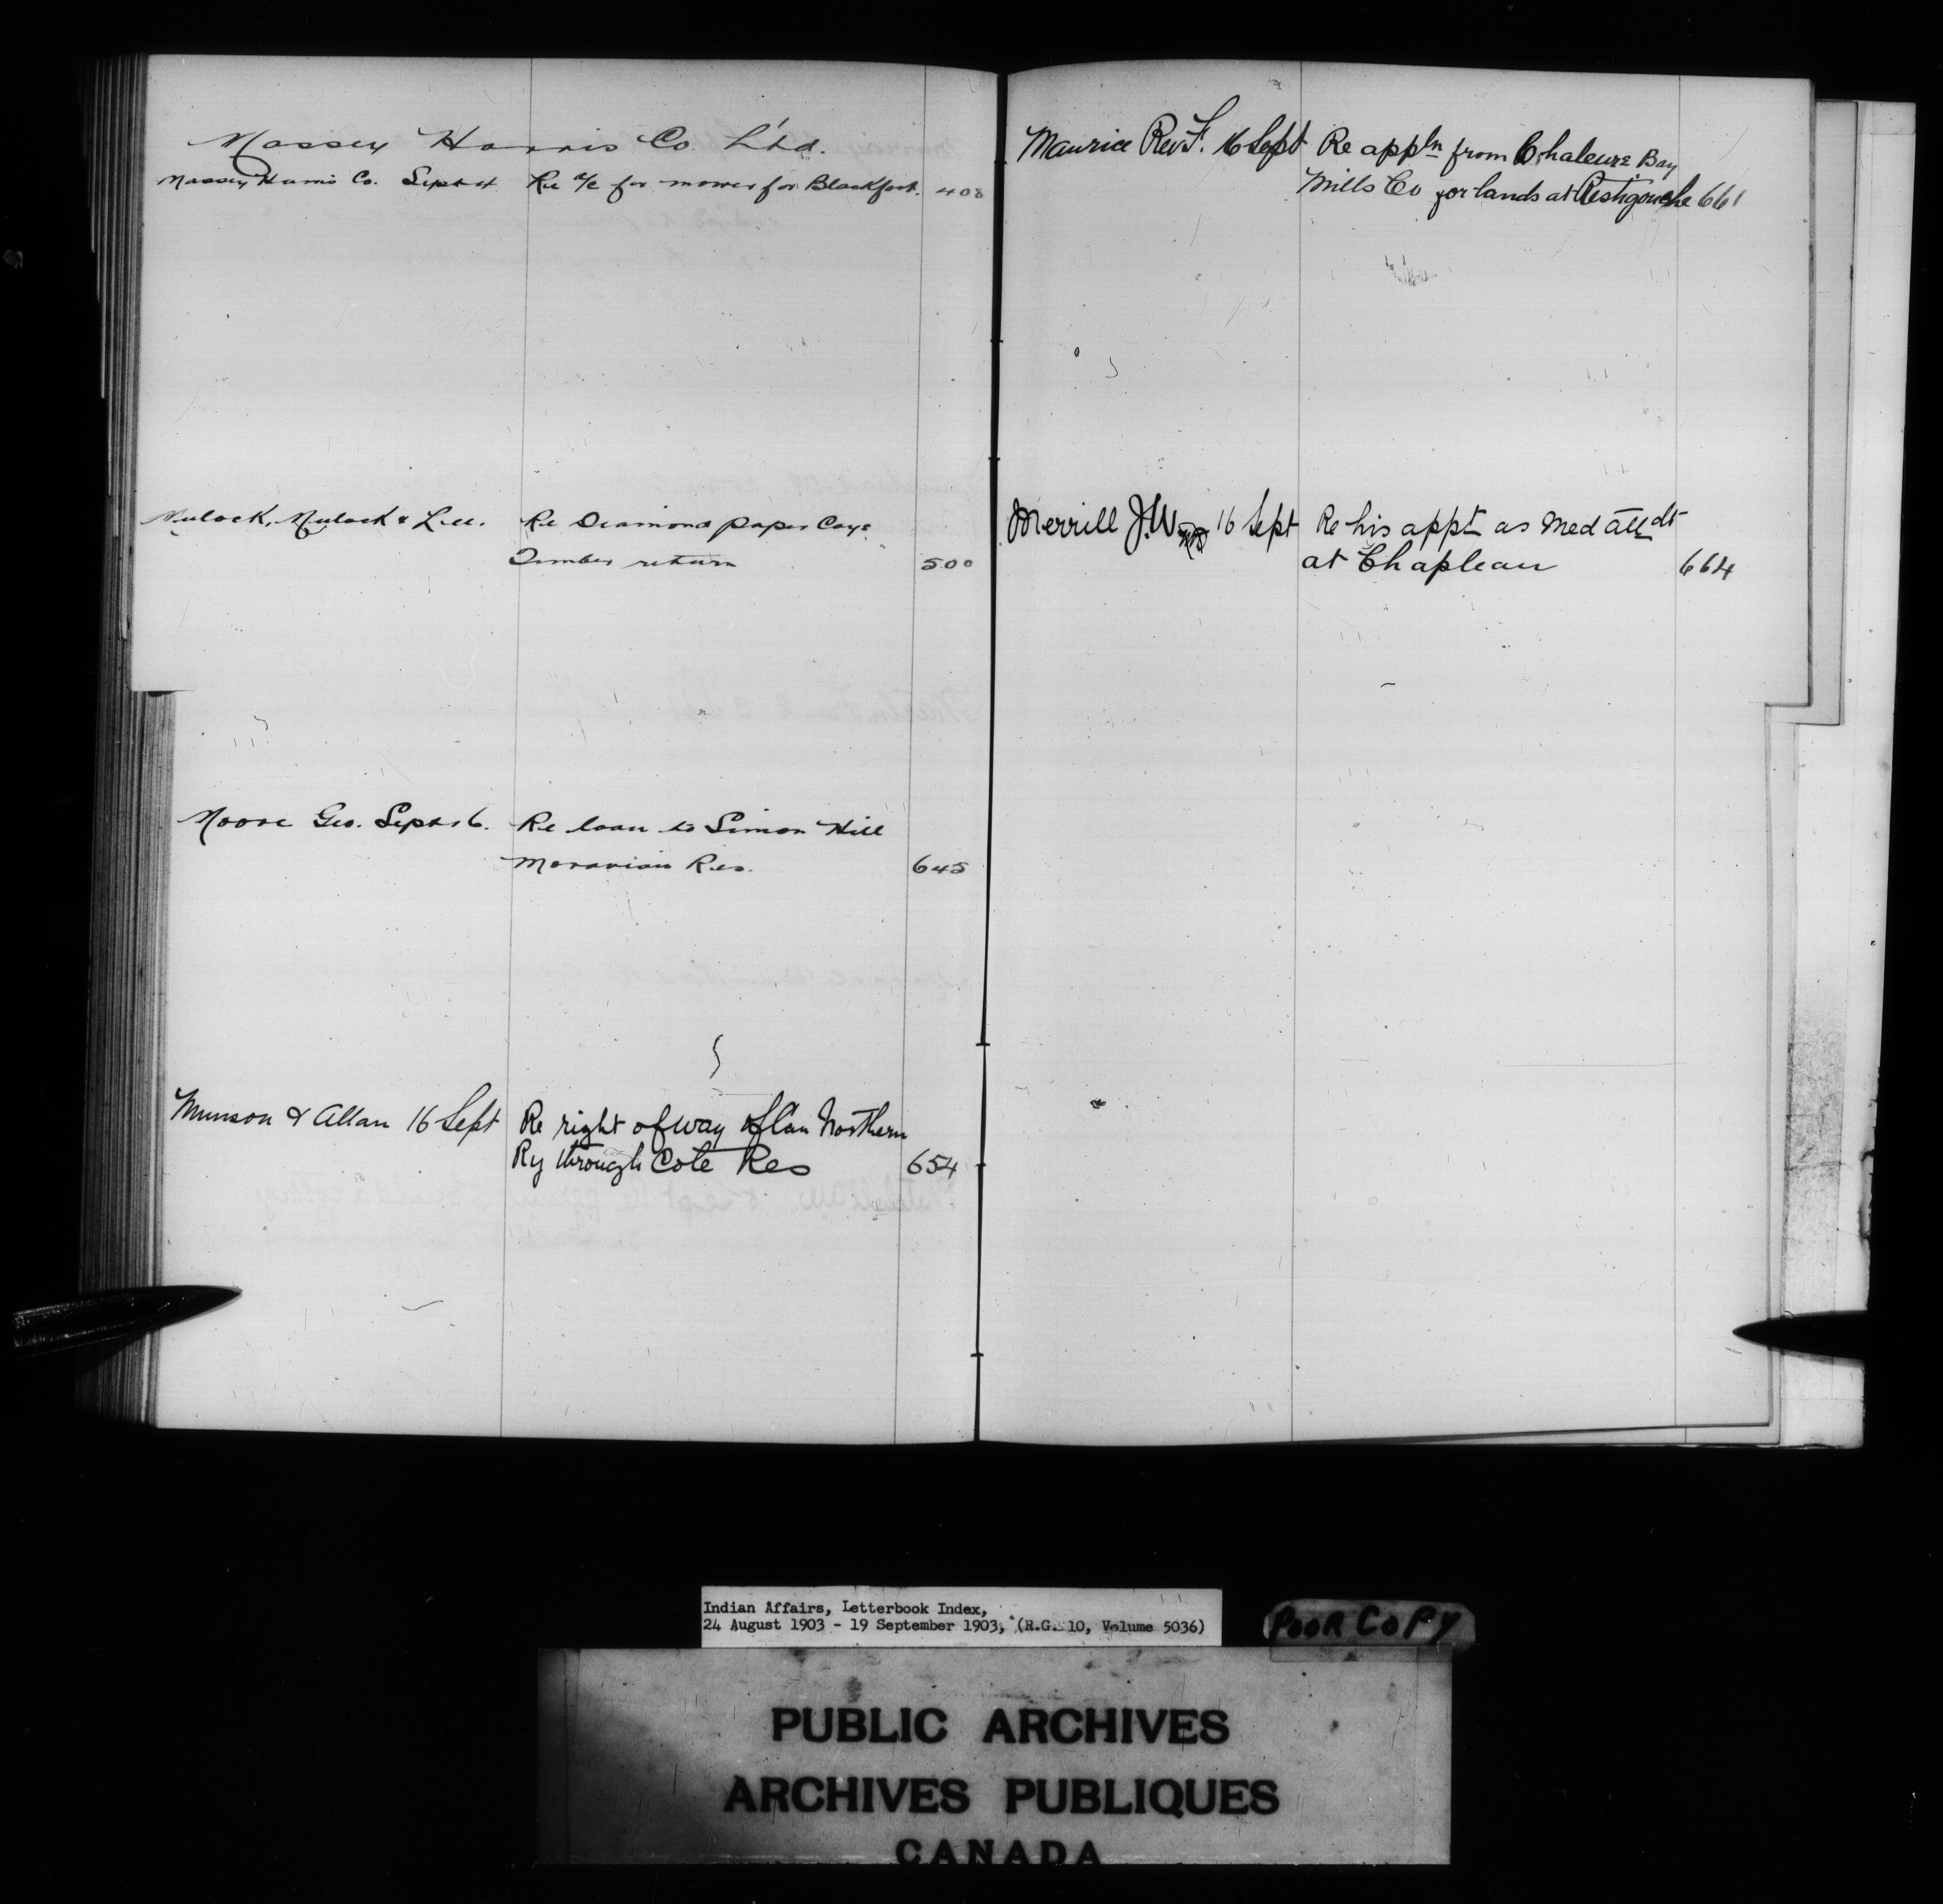 Massey Harris Co. L'td.
Massey Harris Co. Sept 4 Re a/c for mower for Blackfoot. 408
Mulock, Mulock & Lee. Re Diamond paper Coys
Timber return 500
Moore Geo. Sept 16. Re loan to Simon Hill
Moravian Res. 645
Munson & Allan 16 Sept Re right of way of Can Northern
Ry through Cote Res 654
Maurice Rev F. 16 Sept Re appln from Chaleurs Bay
Mills Co for lands at Restigouche 661
Merrill J.W. 16 Sept Re his appt as Med Attdt
at Chapleau 664
Indian Affairs, Letterbook Index,
24 August 1903 - 19 September 1903, (R.G. 10, Volume 5036)
POOR COPY
PUBLIC ARCHIVES
ARCHIVES PUBLIQUES
CANADA